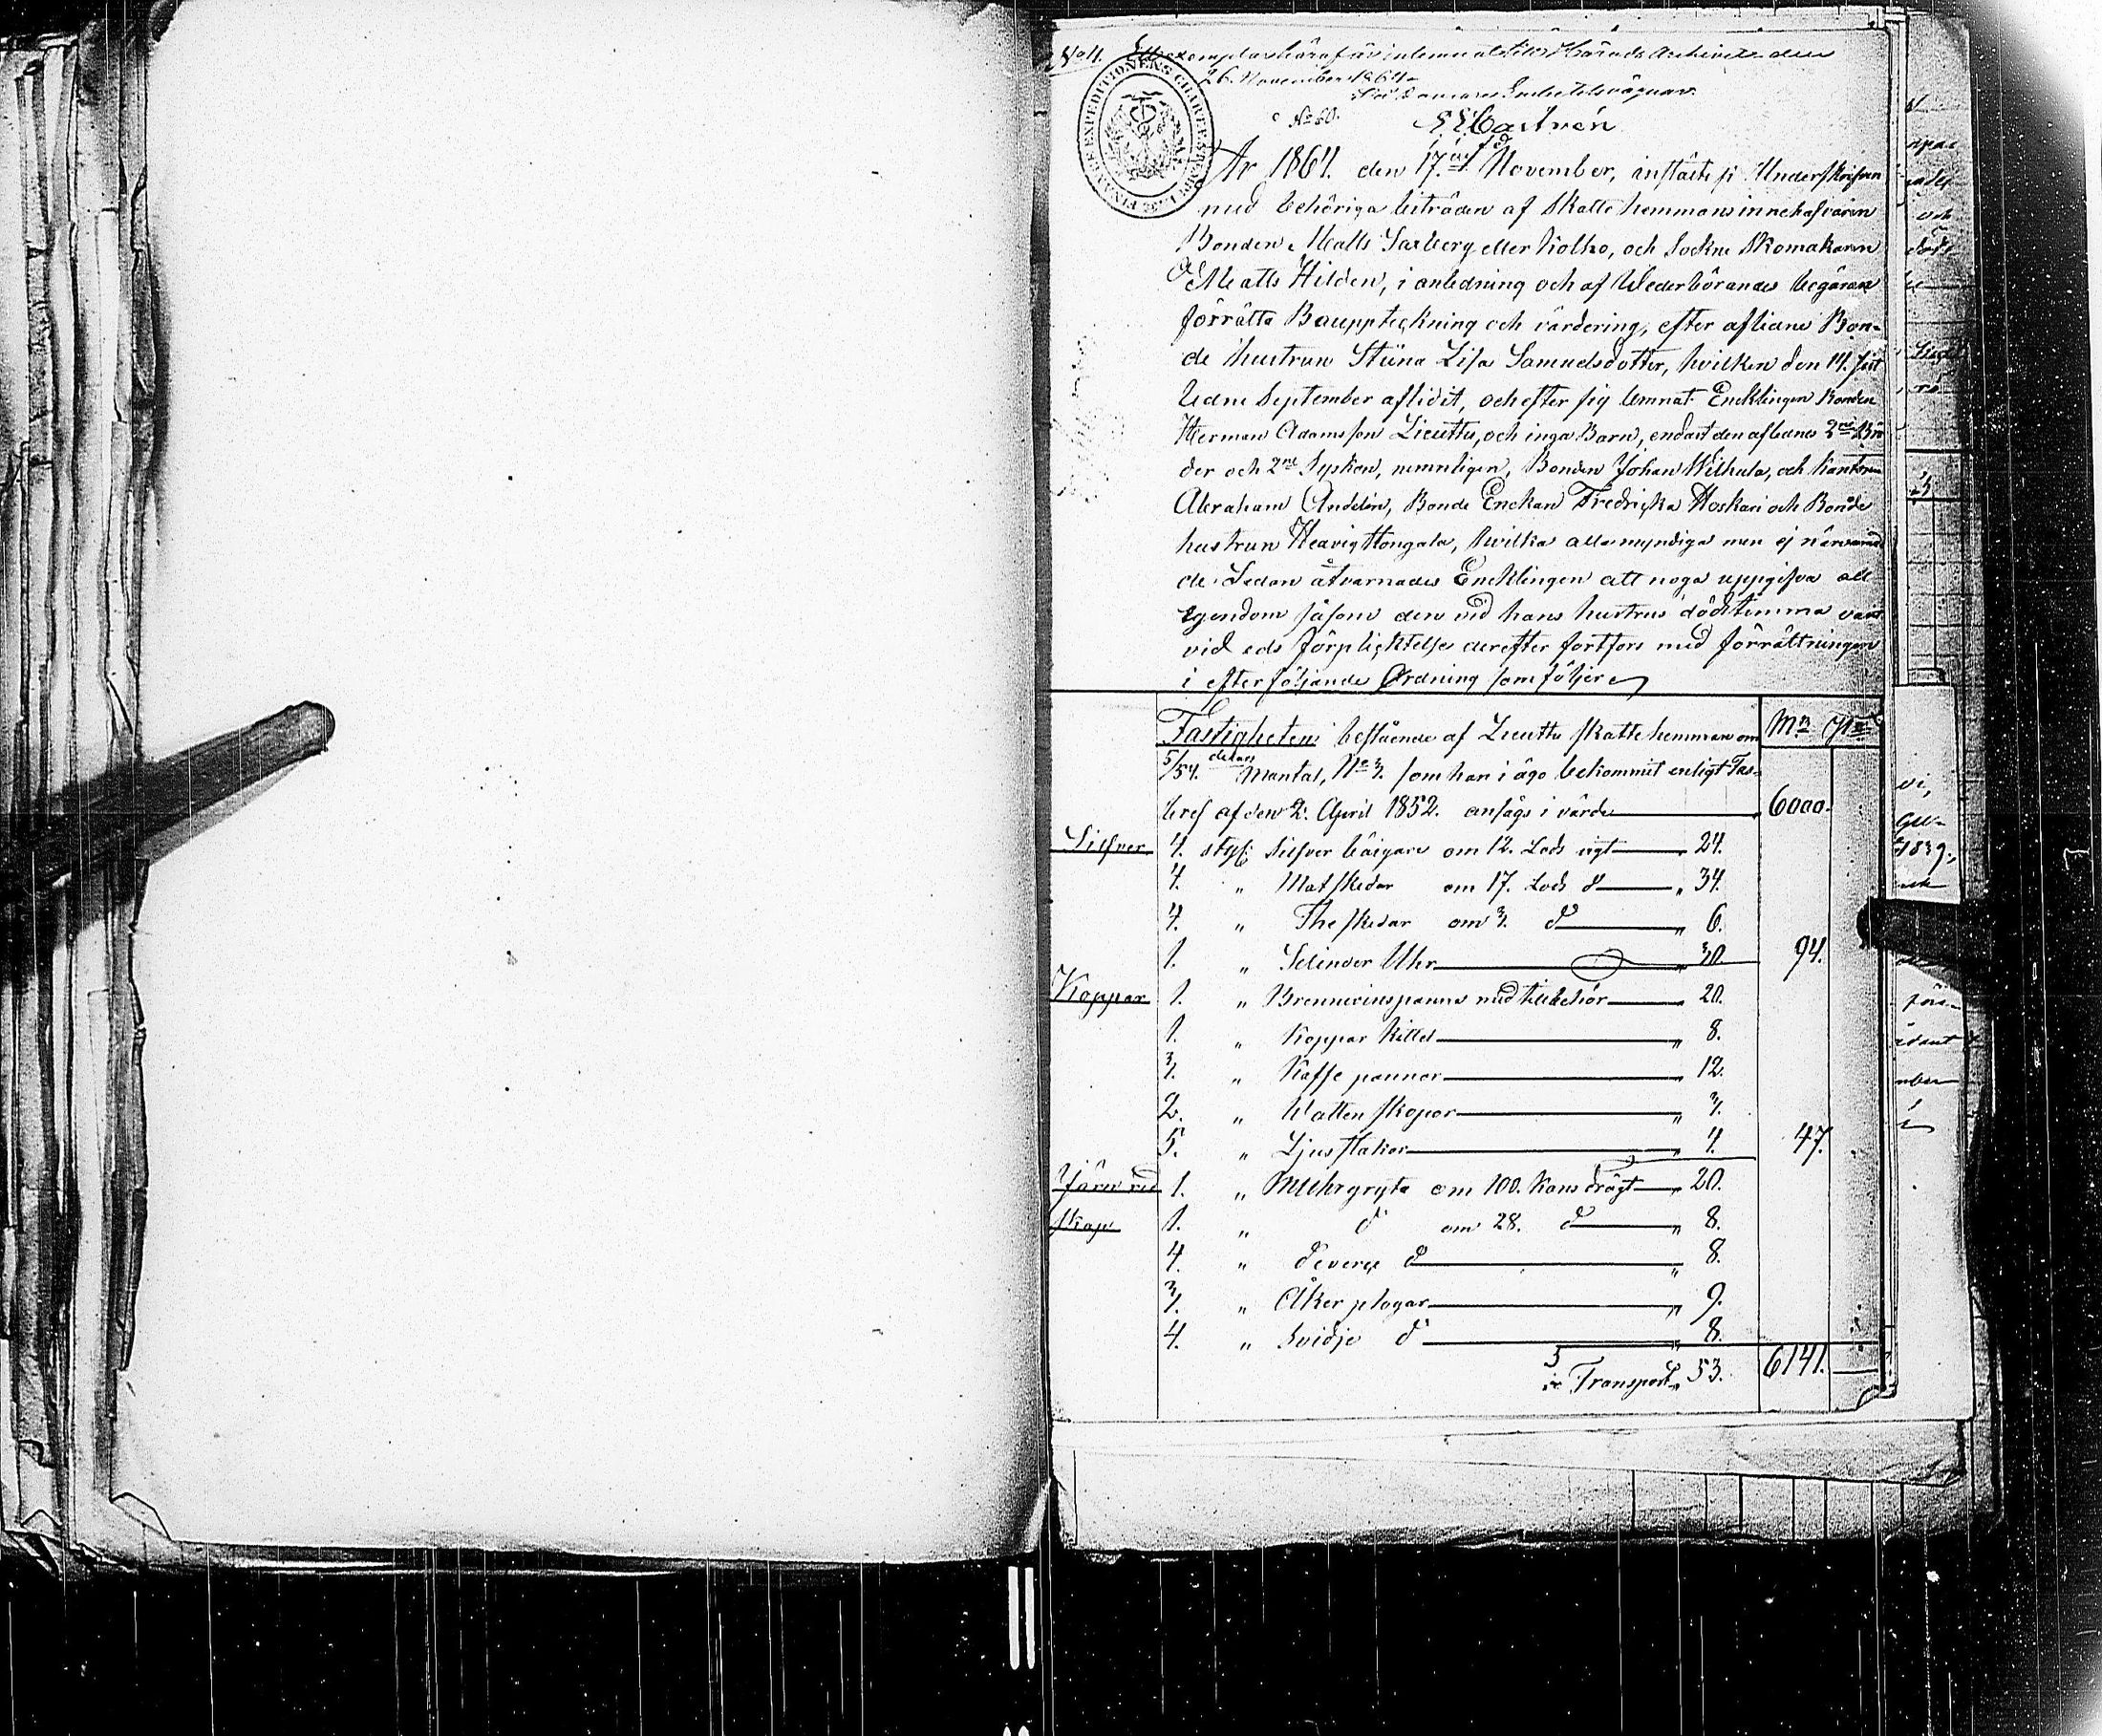 No 4. Ett exemplar häraf är inlemnadt till Härads Archivet den
26. November 1864.
På Domare Embetets vägnar.
No 60.
Castrén
År 1864. den 17.de November, instälte sig Underskrifven
med behöriga biträden af Skatte hemmans innehafvaren
Bonden Matts Saxberg eller Kolho, och Sockne Skomakaren
Matts Hildén, i anledning och af Wederbörandes begäran
förrätta Bouppteckning och värdering, efter aflidne Bon-
de hustrun Stiina Lisa Samuelsdotter, hvilken den 14. sist
lidne September aflidit, och efter sig lemnat Encklingen Bonden
Herman Adamsson Lieuttu, och inga Barn, endast den aflidnes 2ne Brö
der och 2ne Syskon, nemnligen, Bonden Johan Wilhula, och Kantorn
Abraham Andelin, Bonde Enckan Fredricka Hoskari och Bonde
hustrun Heavig Hongala, hvilka alla myndiga men ej närvaran
de. Sedan åtvarnades Encklingen att noga uppgifva all
egendom såsom den vid hans hustrus dödstimma varit
vid eds förplicktelse derefter fortfors med förrättningen
i efterföljande Ordning som följer
Fastigheten bestående af Lieuttu skatte hemman om Mk Pi
5/54. delars Mantal, No 3. som han i ägo bekommit enligt Fas-
bref af den 2. April 1852. ansågs i värde 6000.
Silfver. 4. styk: Silfver bägare om 12. Lods vigt 24.
4. " Matskedar om 17. Lods d " 34.
4. " Theskedar om 3. d " 6.
1. " Selinder Uhr " 30 94.
Koppar 1. " Brännvinspanna med tillbehör 20.
1. " Koppar kittel " 8.
3. " Kaffe pannor " 12.
2. " Watten skopor " 3.
5. " Ljusstakar " 4. 47.
Järn red 1. " Muhrgryta om 100. Kans drägt " 20.
skap 1. " d om 28. d " 8.
4. " d överge d " 8.
3. " Åker plogar " 9.
4. " Svidje d " 8.
Transport " 53. 6141.